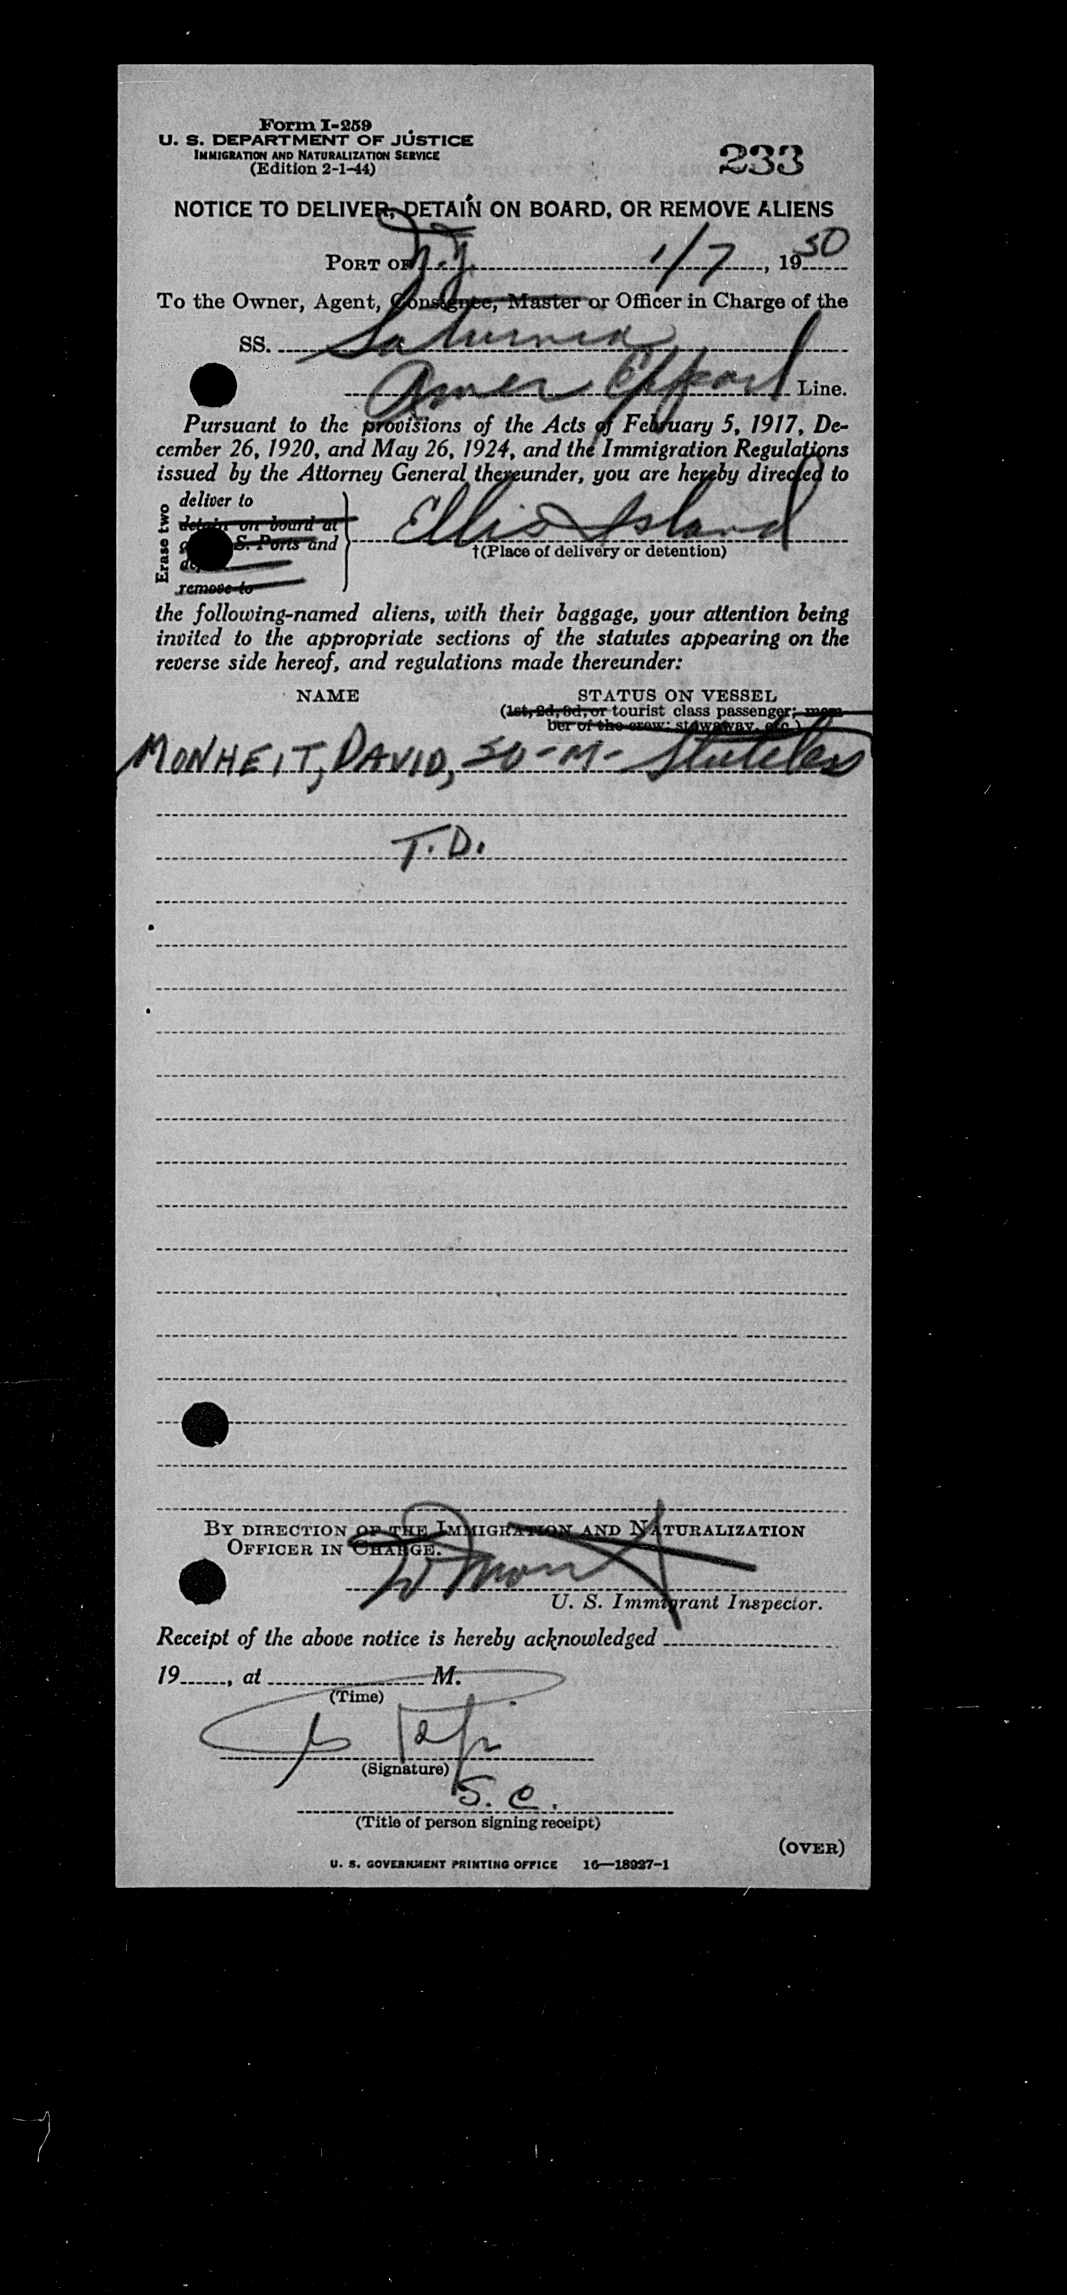 Form I-259
U. S. DEPARTMENT OF JUSTICE
IMMIGRATION AND NATURALIZATION SERVICE
(Edition 2-1-44)
233
NOTICE TO DELIVER, DETAIN ON BOARD, OR REMOVE ALIENS
PORT OF N.Y. 1/7, 1950
To the Owner, Agent, Consignee, Master or Officer in Charge of the
SS. Saturnia
Amer Export Line.
Pursuant to the provisions of the Acts of February 5, 1917, De-
cember 26, 1920, and May 26, 1924, and the Immigration Regulations
issued by the Attorney General thereunder, you are hereby directed to
Erase two
deliver to
detain on board at
S. Ports and
remove to
Ellis Island
†(Place of delivery or detention)
the following-named aliens, with their baggage, your attention being
invited to the appropriate sections of the statutes appearing on the
reverse side hereof, and regulations made thereunder:
NAME STATUS ON VESSEL
(1st, 2d, 3d, or tourist class passenger; mem-
ber of the crew; stowaway, etc.)
MONHEIT, DAVID, 50-M- Stateless
T.D.
BY DIRECTION OF THE IMMIGRATION AND NATURALIZATION
OFFICER IN CHARGE.
U. S. Immigrant Inspector.
Receipt of the above notice is hereby acknowledged
19, at M.
(Time)
(Signature)
S. C.
(Title of person signing receipt)
(OVER)
U. S. GOVERNMENT PRINTING OFFICE 16—18927-1